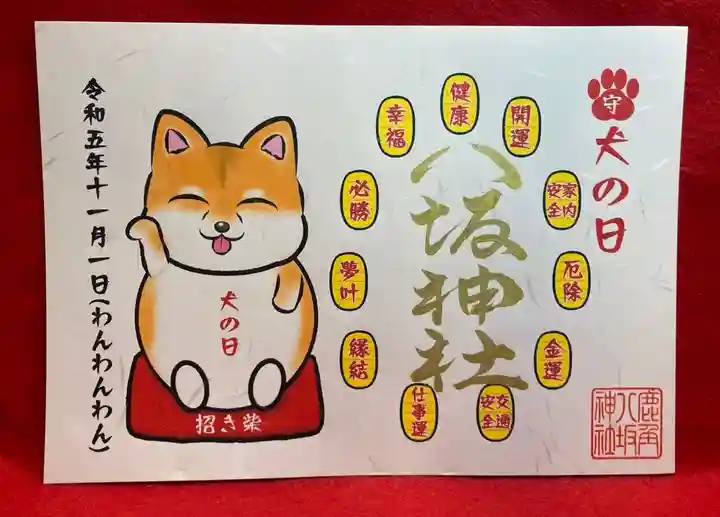 守
犬の日
八坂神社
健康
開運
家内安全
厄除
金運
交通安全
仕事運
縁結
夢叶
必勝
幸福
鹿角八坂神社
犬の日
招き柴
令和五年十一月一日(わんわんわん)